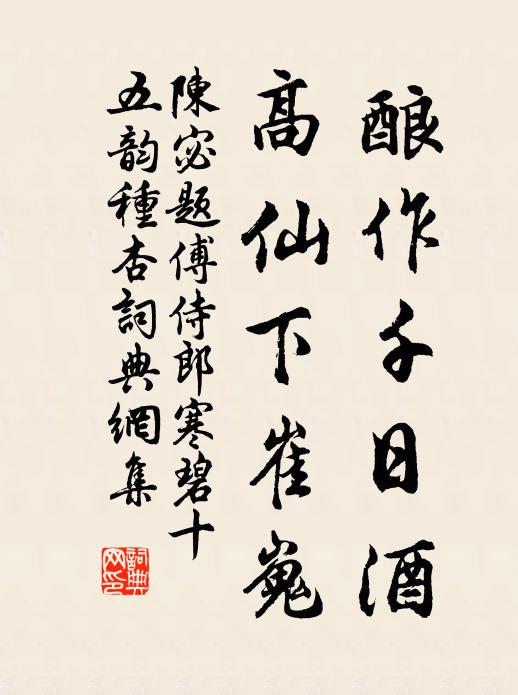 酿作千日酒
高仙下崔嵬
陳宓题傅侍郎寒碧十
五韵種杏詞典網集
詞典网印